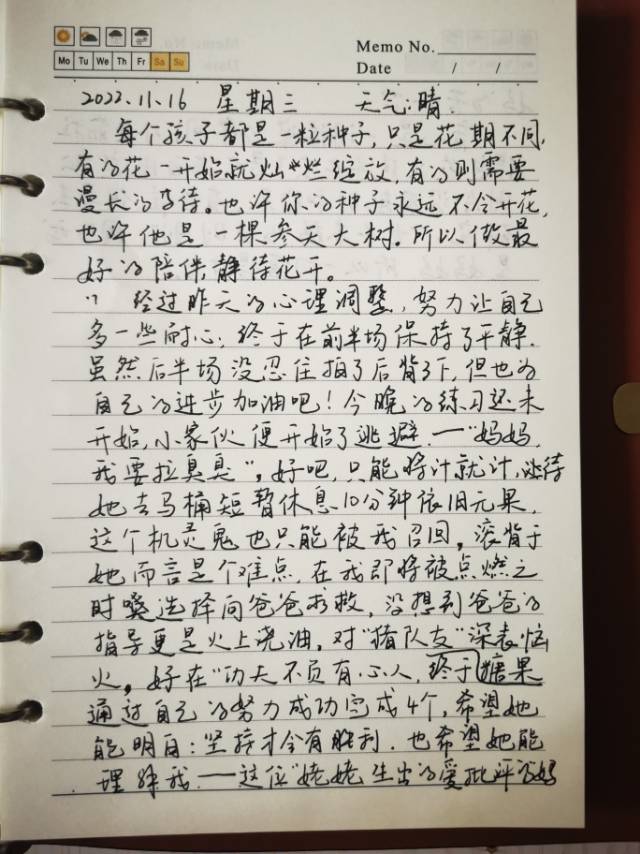 Memo No.
Mo Tu We Th Fr Sa Su
Date / /
2022.11.16 星期三 天气:晴.
每个孩子都是一粒种子,只是花期不同,
有的花一开始就灿烂绽放,有的则需要
漫长的等待。也许你的种子永远不会开花,
也许他是一棵参天大树。所以做最
好的陪伴静待花开。
经过昨天的心理调整,努力让自己
多一些耐心,终于在前半场保持了平静.
虽然后半场没忍住拍了后背下,但也为
自己的进步加油吧!今晚的练习还未
开始,小家伙便开始了逃避.一"妈妈,
我要拉臭臭",好吧,只能将计就计,
她去马桶短暂休息10分钟依旧无果,
这个机灵鬼也只能被我召回。滚背于
她而言是个难点,在我即将被点燃之
时嗓选择向爸爸求救,没想到爸爸的
指导更是火上浇油,对"猪队友"深表恼
火。好在"功夫不负有心人,终于糖果
通过自己的努力成功完成4个,希望她
能明白:坚持才会有胜利.也希望她能
理解我.——这位"姥姥生出的爱批评的妈